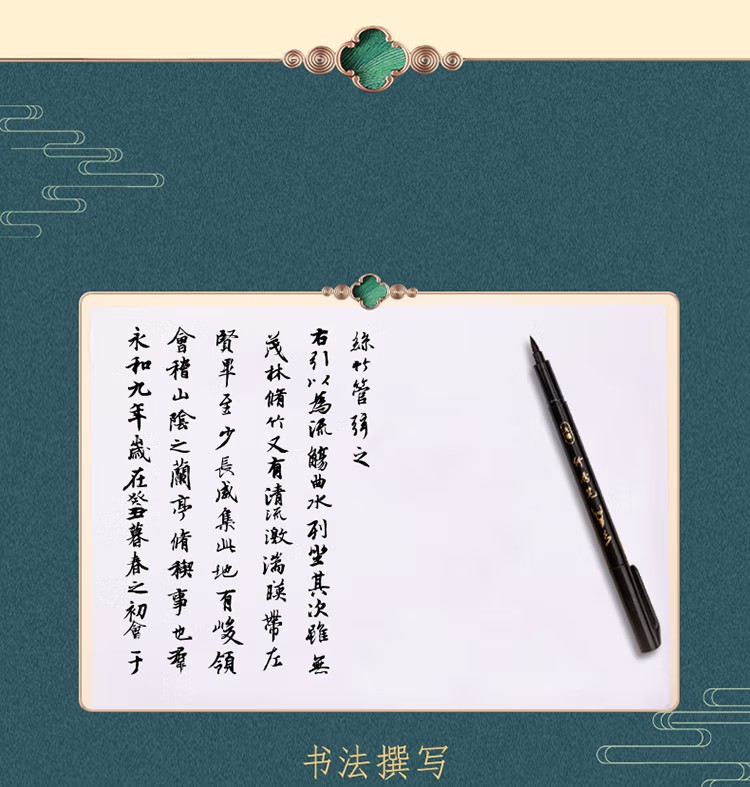 永和九年歲在癸丑暮春之初會于
會稽山陰之蘭亭脩稧事也羣
賢畢至少長咸集此地有峻領
茂林脩竹又有清流激湍暎帶左
右引以為流觴曲水列坐其次雖無
絲竹管弦之
书法撰写